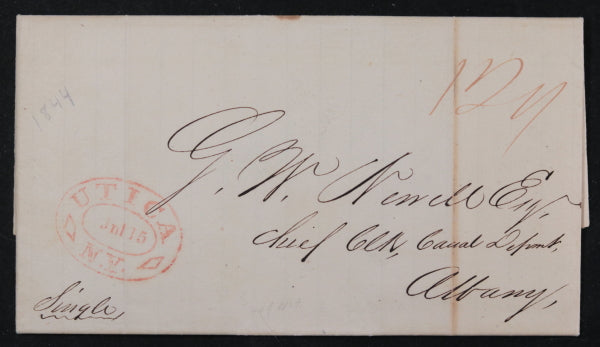 1844
12½
G. W. Newell Esq.
chief Clk, Canal Depmt,
Albany,
UTICA
Jul 15
N.Y.
Single,